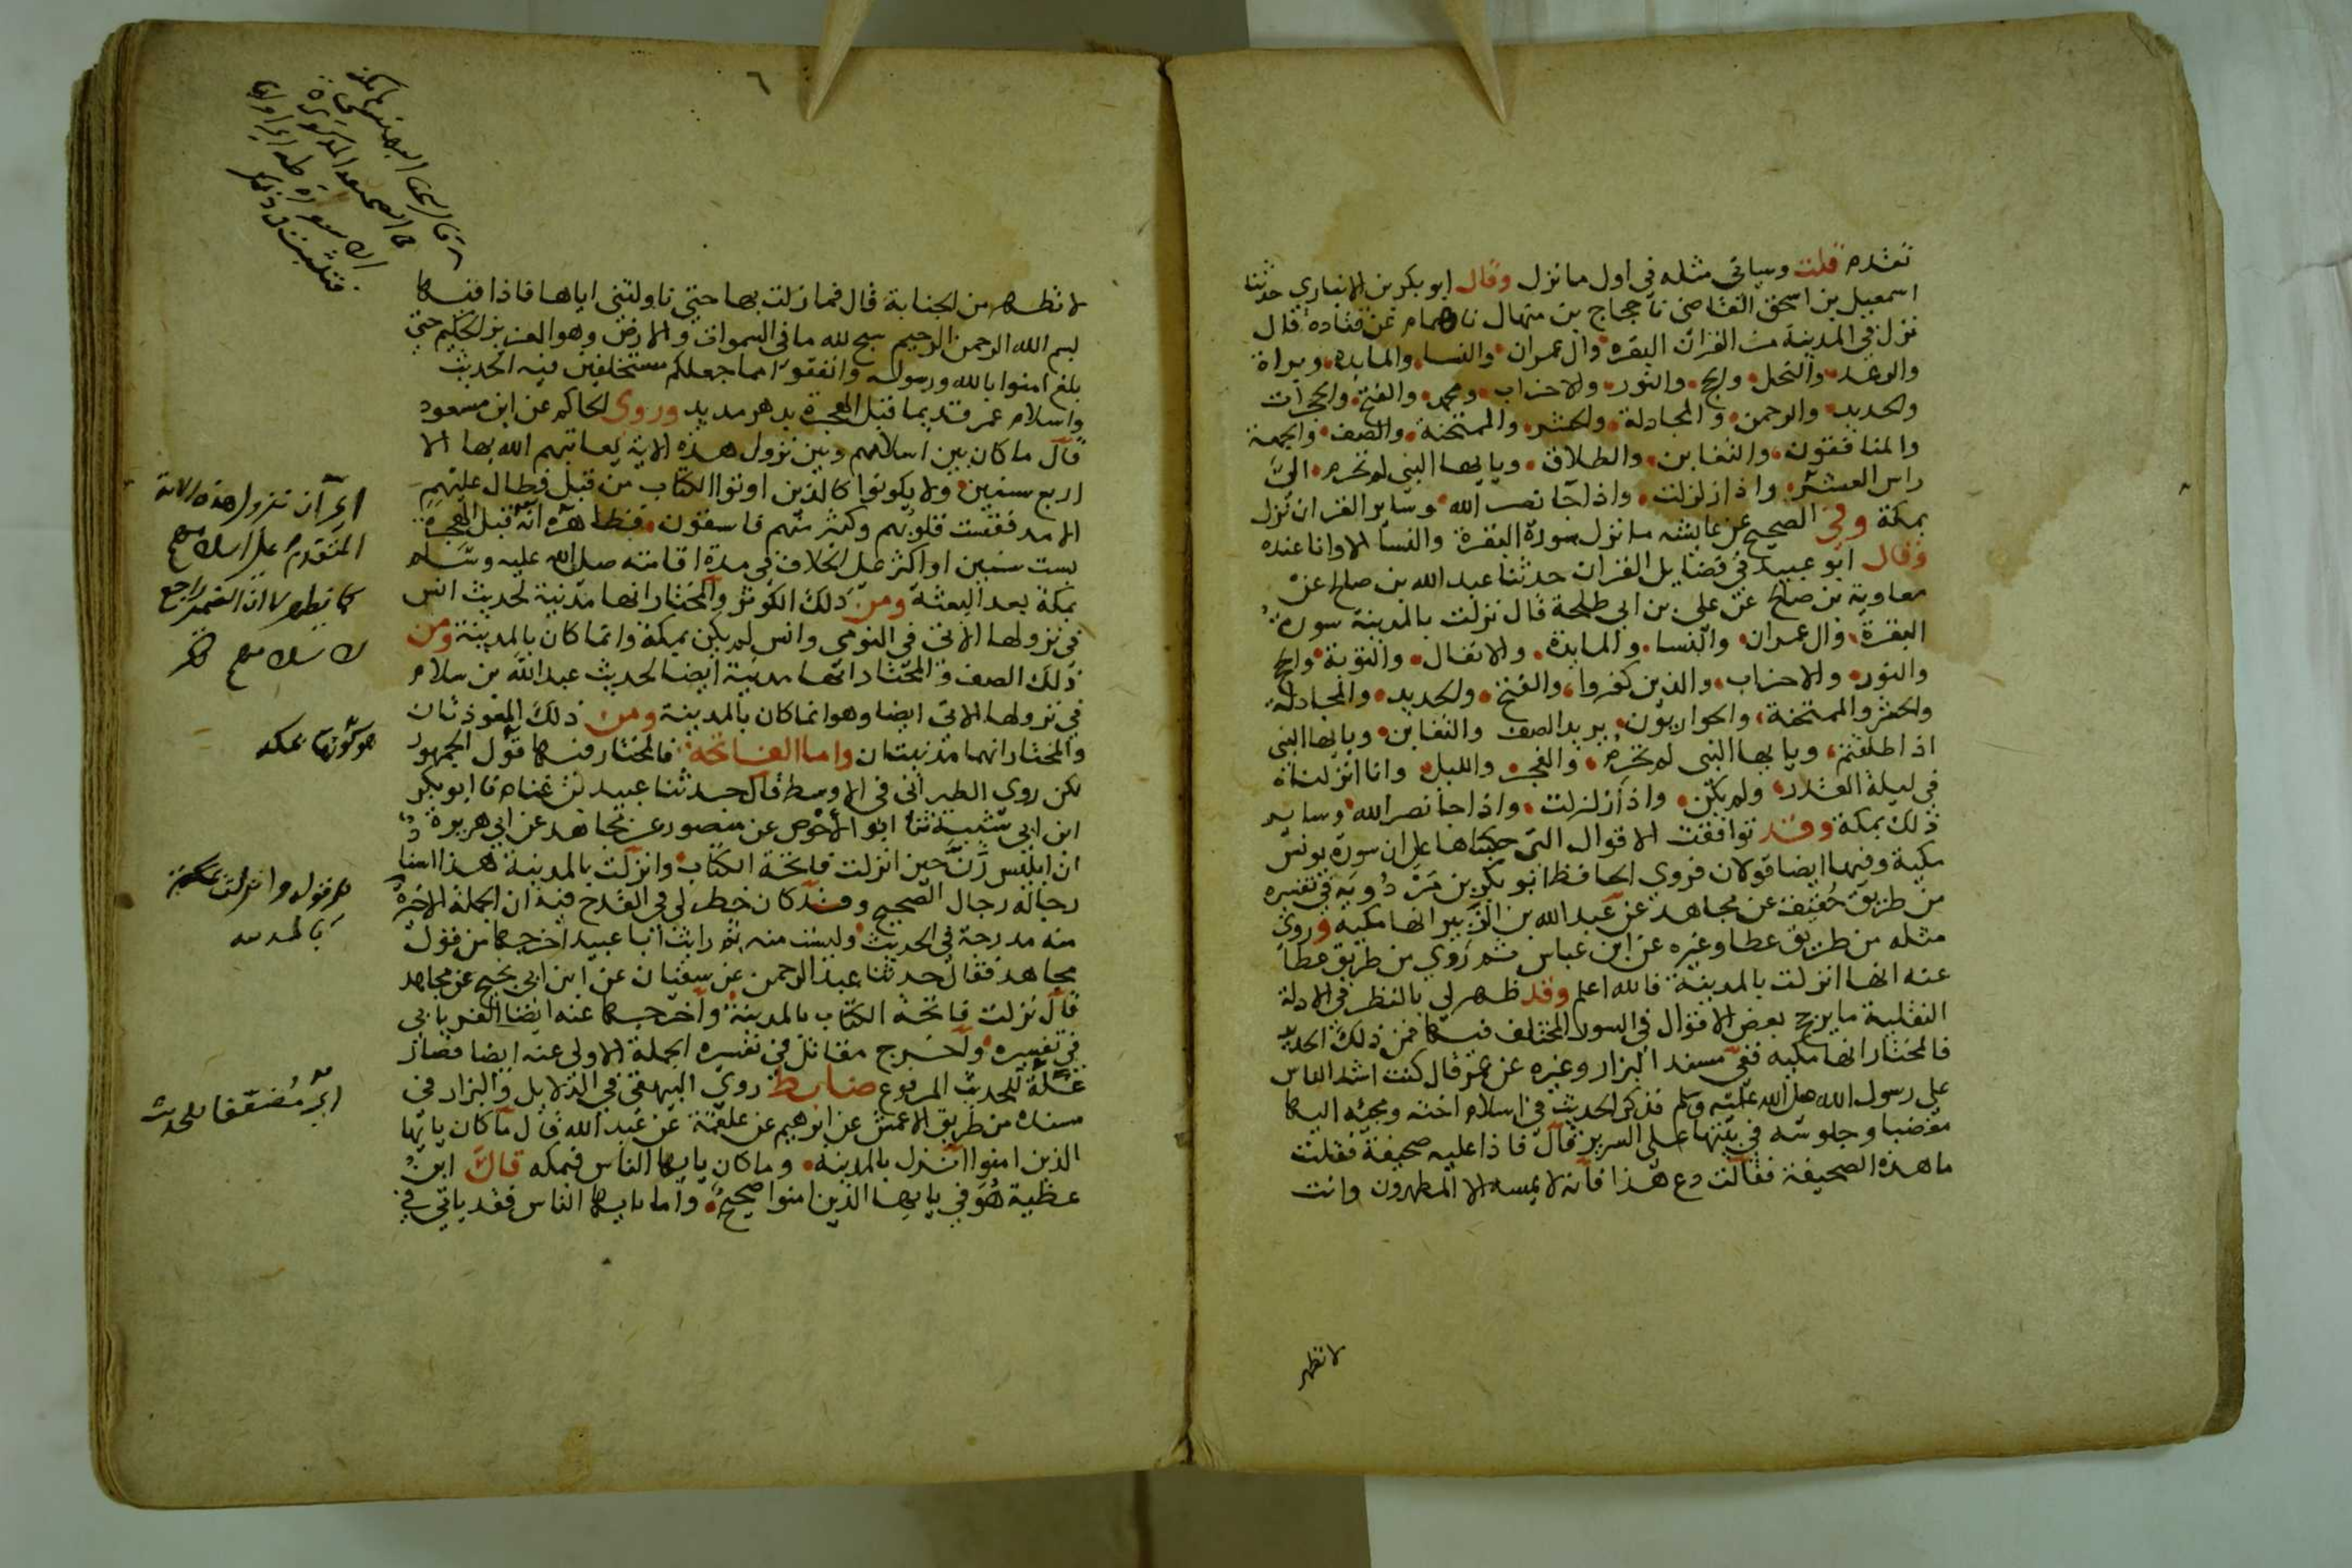 تقدم قلت وسياتي مثله في اول ما نزل وقال ابو بكر بن الانباري حدثنا
اسمعيل بن اسحق القاضي نا حجاج بن منهال نا همام عن قتادة قال
نزل في المدينة من القران البقره وال عمران والنسا والمايده وبراة
والرعد والنحل والحج والنور والاحزاب ومحمد والفتح والحجرات
والحديد والرحمن والمجادلة والحشر والممتحنة والصف والجمعة
والمنافقون والتغابن والطلاق ويايها النبي لم تحرم الى
راس العشر واذا زلزلت واذا جا نصر الله وساير القران نزل
بمكة وفي الصحيح عن عايشه ما نزل سورة البقرة والنسا الا وانا عنده
وقال ابو عبيد في فضايل القران حدثنا عبد الله بن صالح عن
معاوية بن صالح عن علي بن ابي طلحة قال نزلت بالمدينة سورة
البقرة وال عمران والنسا والمايدة والانفال والتوبة والحج
والنور والاحزاب والذين كفروا والفتح والحديد والمجادلة
والحشر والممتحنة والحواريون يريد الصف والتغابن ويايها النبي
اذا طلقتم ويايها النبي لم تحرم والفجر والليل وانا انزلناه
في ليلة القدر ولم يكن واذا زلزلت واذا جا نصر الله وساير
ذلك بمكة وقد توافقت الاقوال التي حكيناها على ان سورة يونس
مكية وفيها ايضا قولان فروى الحافظ ابو بكر بن مردويه في تفسيره
من طريق خصيف عن مجاهد عن عبد الله بن الزبير انها مكية وروى
مثله من طريق عطا وغيره عن ابن عباس ثم روى من طريق عطا
عنه انها انزلت بالمدينة فالله اعلم وقد ظهر لي بالنظر في الادلة
النقلية ما يرجح بعض الاقوال في السور المختلف فيها فمن ذلك الحديد
فالمختار انها مكيه ففي مسند البزار وغيره عن عمر قال كنت اشد الناس
على رسول الله صلى الله عليه وسلم فذكر الحديث في اسلام اخته ومجيه اليها
مغضبا وجلوسه في بيتها على السرير قال فاذا عليه صحيفة فقلت
ما هذه الصحيفة فقالت دع هذا فانه لا يمسه الا المطهرون وانت
لا تطهر
٦
لا تطهر من الجنابة قال فما زلت بها حتى ناولتني اياها فاذا فيها
بسم الله الرحمن الرحيم سبح لله ما في السموات والارض وهو العزيز الحكيم حتى
بلغ امنوا بالله ورسوله وانفقوا مما جعلكم مستخلفين فيه الحديث
واسلام عمر قديما قبل الهجرة بدهر مديد وروى الحاكم عن ابن مسعود
قال ما كان بين اسلامهم وبين نزول هذه الاية يعاتبهم الله بها الا
اربع سنين ولا يكونوا كالذين اوتوا الكتاب من قبل فطال عليهم
الامد فقست قلوبهم وكثير منهم فاسقون فظاهره انه قبل الهجرة
بست سنين او اكثر على الخلاف في مدة اقامته صلى الله عليه وسلم
بمكة بعد البعثة ومن ذلك الكوثر والمختار انها مدنية لحديث انس
في نزولها الاتي في النومي وانس لم يكن بمكة وانما كان بالمدينة ومن
ذلك الصف والمختار انها مدنية ايضا لحديث عبد الله بن سلام
في نزولها الاتي ايضا وهو انما كان بالمدينة ومن ذلك المعوذتان
والمختار انهما مدنيتان واما الفاتحة فالمختار فيها قول الجمهور
لكن روى الطبراني في الاوسط قال حدثنا عبيد بن غنام نا ابو بكر
ابن ابي شيبة نا ابو الاحوص عن منصور عن مجاهد عن ابي هريرة
ان ابليس رن حين انزلت فاتحة الكتاب وانزلت بالمدينة هذا اسناد
رجاله رجال الصحيح وقد كان خطر لي في القدح فيه ان الجملة الاخيرة
منه مدرجة في الحديث وليست منه ثم رايت ابا عبيد اخرجها من قول
مجاهد فقال حدثنا عبد الرحمن عن سفيان عن ابن ابي نجيح عن مجاهد
قال نزلت فاتحة الكتاب بالمدينة واخرجها عنه ايضا الفريابي
في تفسيره واخرج مقاتل في تفسيره الجملة الاولى عنه ايضا فصار
علة للحديث المرفوع ضابط روى البيهقي في الدلايل والبزار في
مسنده من طريق الاعمش عن ابرهيم عن علقمة عن عبد الله قال ما كان يايها
الذين امنوا انزل بالمدينه وما كان يايها الناس فبمكه قال ابن
عطية هو في يايها الذين امنوا صحيح واما يايها الناس فقد ياتي في
اي ان نزول هذه الاية
المتقدم على اسلامهم
راجع
هو كونها بمكه
هو قوله وانزلت
بالمدينه
اي مضعفا للحديث